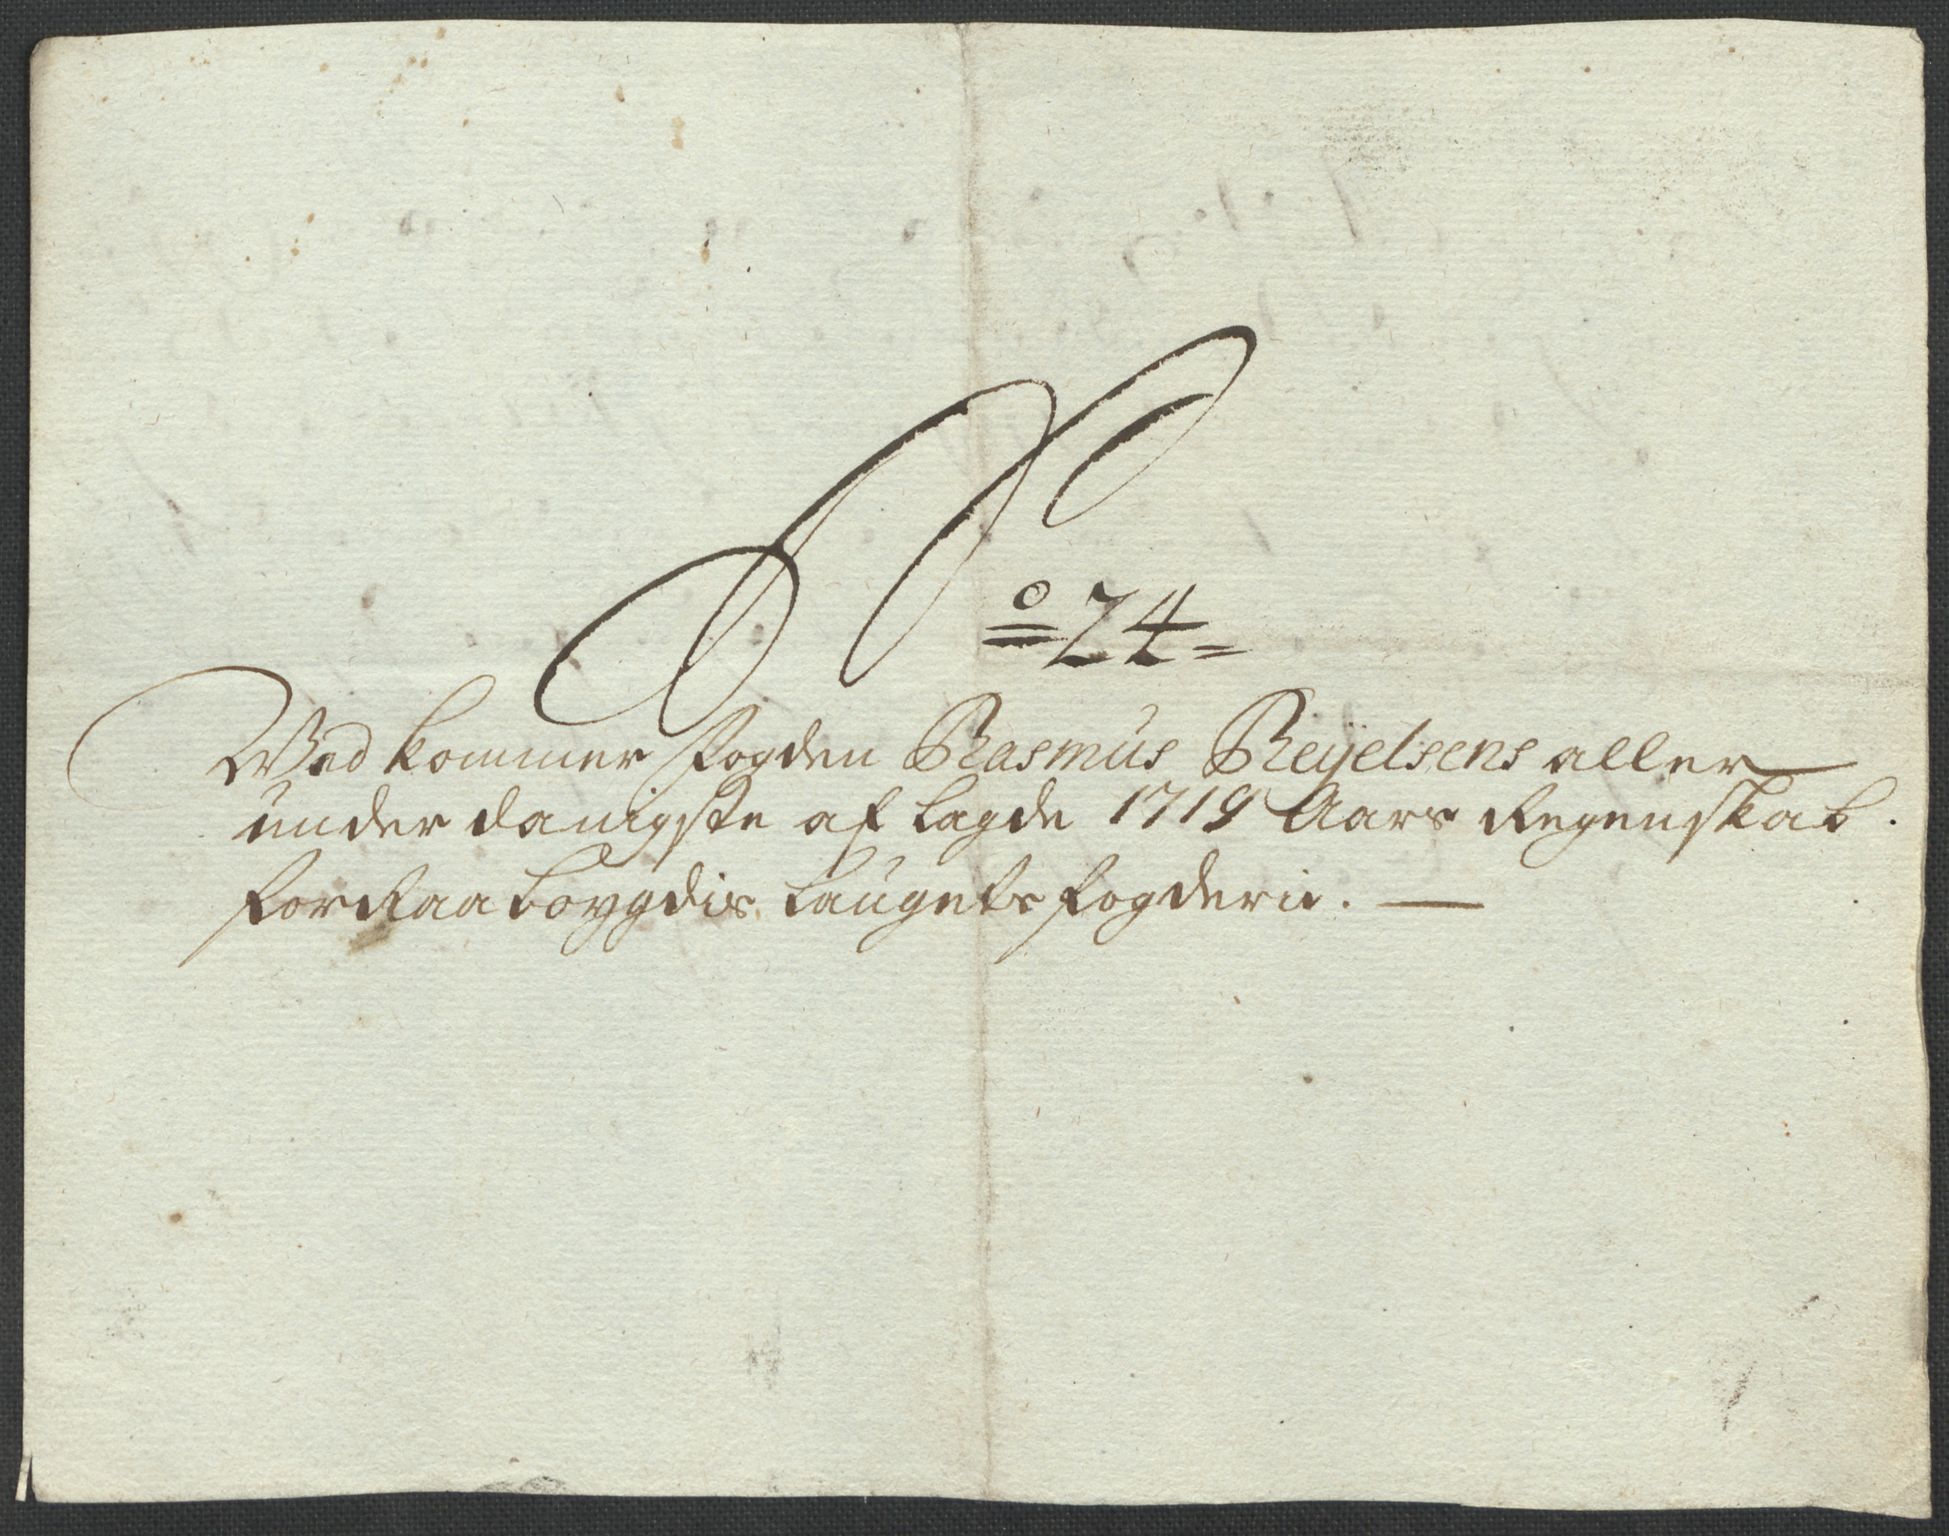 No 24
Ved kommer fogden Rasmus Reyelsens aller
under danigste af lagde 1719 Aars Regenskab.
for Raabøygdis laugets fogderie.